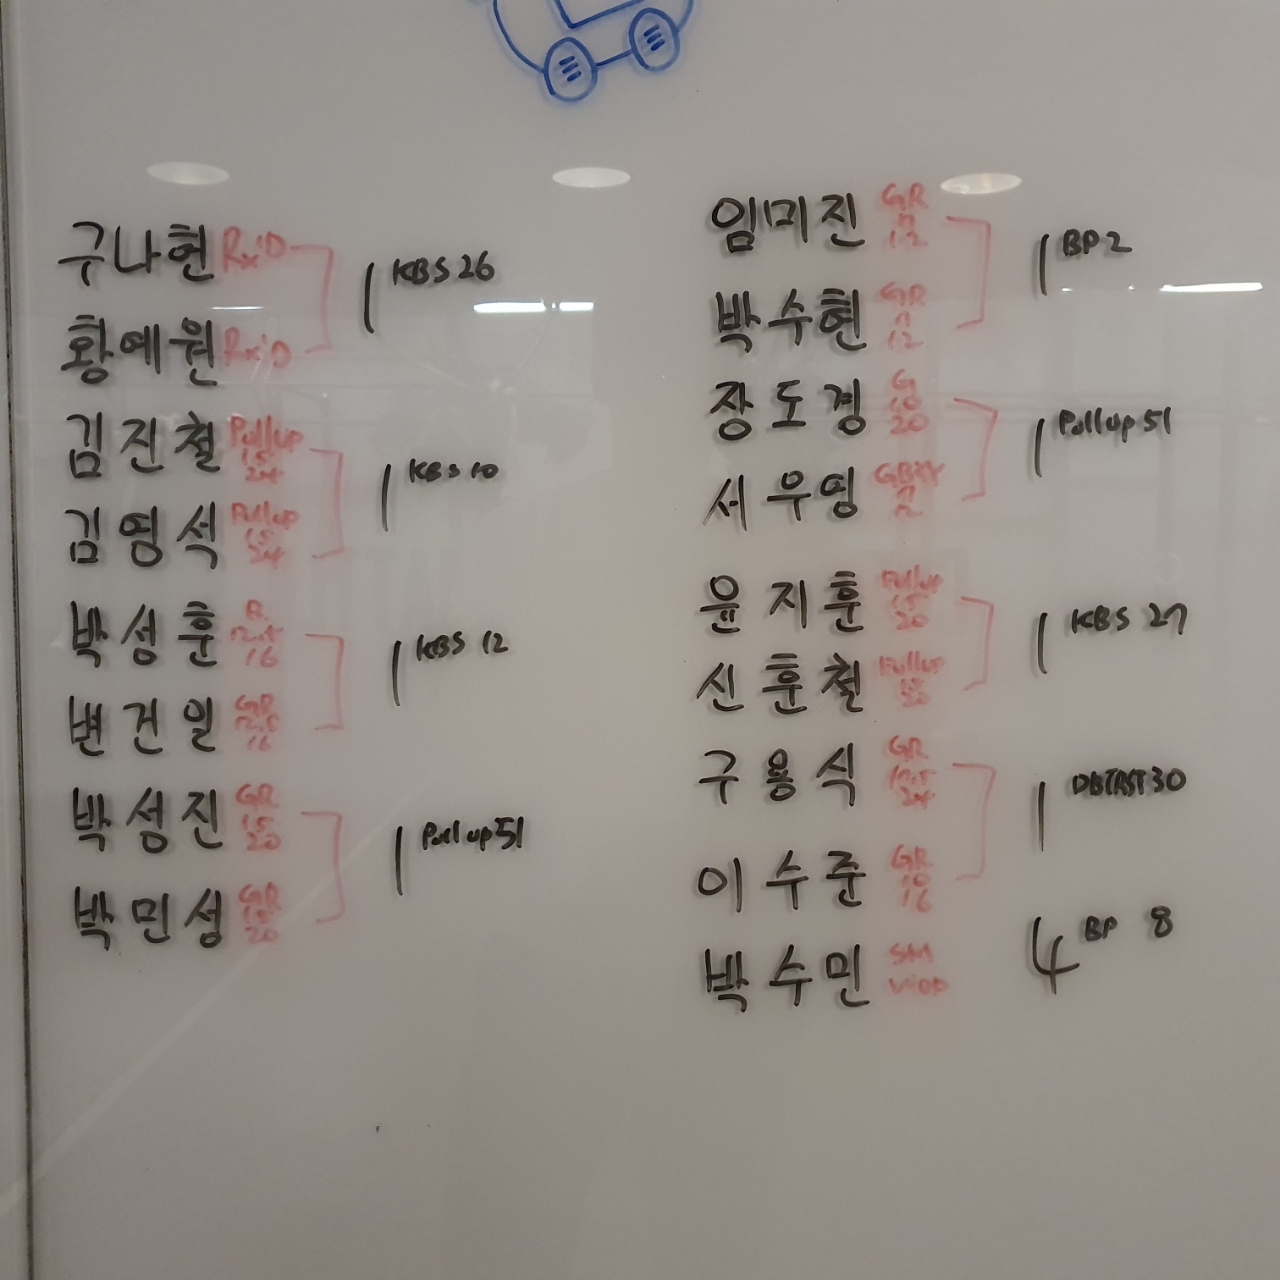 구나현 Rx'D
1 KBS 26
황예원 Rx'D
김진철 Pullup
15
24
1 KBS 10
김영석 Pullup
15
24
박성훈 R
12.5
16
1 KBS 12
변건일 GR
12.5
16
박성진 GR
15
20
1 Pull up 51
박민성 GR
15
20
임미진 GR
12
1 BP 2
박수현 GR
12
장도경 G
10
20
1 Pullup 51
서우영
윤지훈 Pullup
15
20
1 KBS 27
신훈철 Pullup
구용식 GR
12.5
24
1 30
이수준 GR
10
16
4 BP 8
박수민